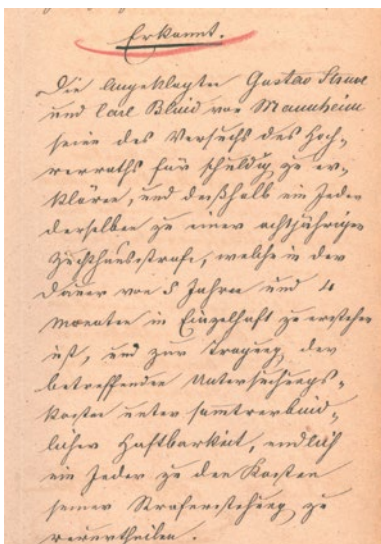 Erkannt.
Die Angeklagten Gustav Struve
und Carl Blind von Mannheim
seien des Versuchs des Hoch-
verraths für schuldig zu er-
klären, und deßhalb ein Jeder
derselben zu einer achtjährigen
Zuchthausstrafe, welche in der
Dauer von 5 Jahren und 4
Monaten in Einzelhaft zu erstehen
ist, und zur Tragung der
betreffenden Untersuchungs-
kosten unter sammtverbind-
licher Haftbarkeit, endlich
ein Jeder zu den Kosten
seiner Straferstehung zu
verurtheilen.